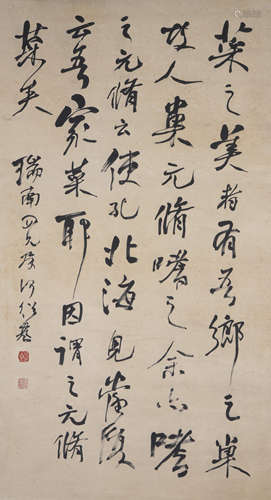 菜之美者有吾鄉之巢
故人巢元脩嗜之余亦嗜
之元脩云使孔北海見當復
云吾家菜耶因謂之元脩
菜矣
瑞南四兄屬何紹基